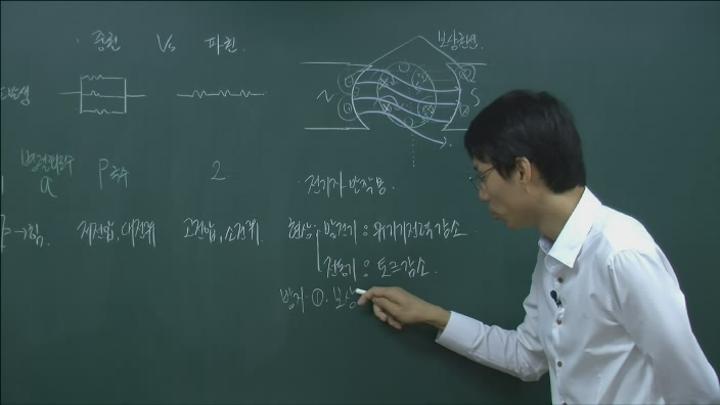 · 중권 Vs 파권
보상권선.
N S
a P극수 2
전기자 반작용.
→힘. 저전압, 대전류 고전압, 소전류. 현상 발전기 : 유기기전력 감소
전동기 : 토크감소.
방지 ①. 보상